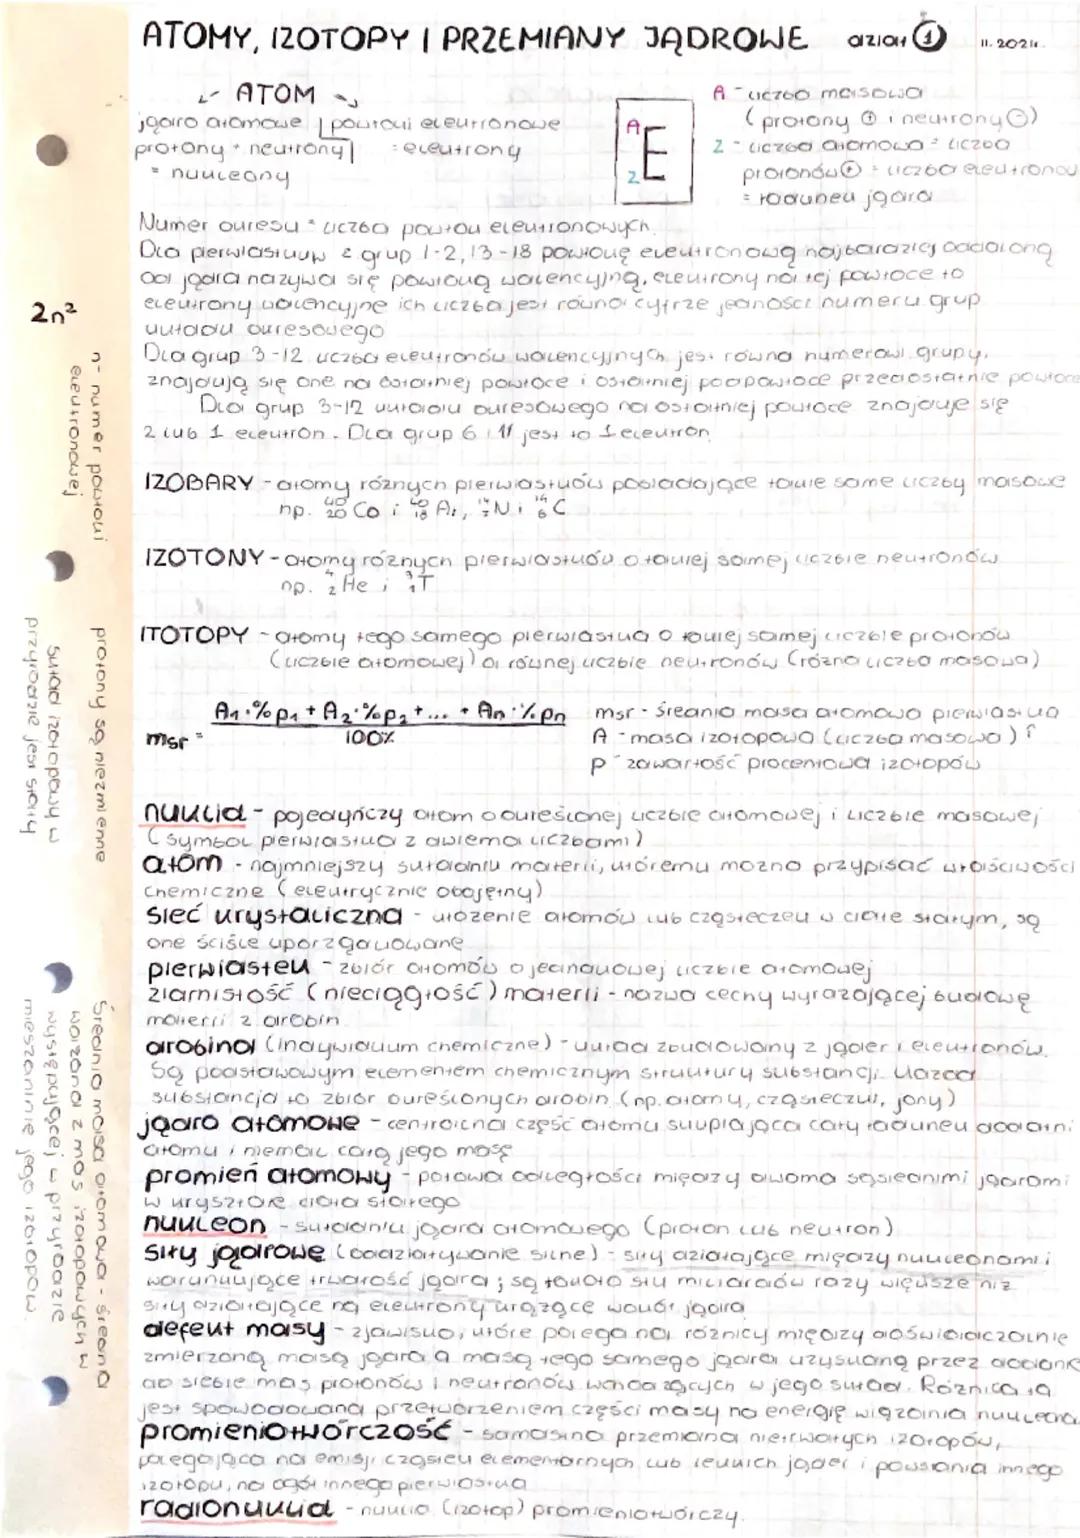 ATOMY, IZOTOPY I PRZEMIANY JĄDROWE dział ① 11.2021r.
ATOM
jądro atomowe | powłoki elektronowe
protony + neutrony | = elektrony
= nukleony
A
Z E
A - liczba masowa
( protony ⊕ i neutrony ⊖)
Z - liczba atomowa = liczba
protonów ⊕ = liczba elektronów
= ładunek jądra
Numer okresu = liczba powłok elektronowych.
Dla pierwiastków z grup 1-2, 13-18 powłokę elektronową najbardziej oddaloną
od jądra nazywa się powłoką walencyjną, elektrony na tej powłoce to
elektrony walencyjne ich liczba jest równa cyfrze jedności numeru grup
układu okresowego
Dla grup 3-12 liczba elektronów walencyjnych jest równa numerowi grupy,
znajdują się one na ostatniej powłoce i ostatniej podpowłoce przedostatnie powłoce
Dla grup 3-12 układu okresowego na ostatniej powłoce znajduje się
2 lub 1 elektron. Dla grup 6 i 11 jest to 1 elektron.
2n²
n - numer powłoki
elektronowej
IZOBARY - atomy różnych pierwiastków posiadające takie same liczby masowe
np. ⁴⁰₂₀Ca i ⁴⁰₁₈Ar, ¹⁴₇N i ¹⁴₆C
IZOTONY - atomy różnych pierwiastków o takiej samej liczbie neutronów
np. ⁴₂He i ³₁T
ITOTOPY - atomy tego samego pierwiastka o takiej samej liczbie protonów
(liczbie atomowej) a równej liczbie neutronów (różna liczba masowa)
protony są niezmienne
skład izotopowy w
przyrodzie jest stały
msr = A₁·%p₁ + A₂·%p₂ + ... + An·%pn
100%
msr - średnia masa atomowa pierwiastka
A - masa izotopowa (liczba masowa)
p - zawartość procentowa izotopów
nuklid - pojedyńczy atom o określonej liczbie atomowej i liczbie masowej
(symbol pierwiastka z dwiema liczbami)
atom - najmniejszy składnik materii, któremu można przypisać właściwości
chemiczne (elektrycznie obojętny)
sieć krystaliczna - ułożenie atomów lub cząsteczek w ciele stałym, są
one ściśle uporządkowane
pierwiastek - zbiór atomów o jednakowej liczbie atomowej
ziarnistość (nieciągłość) materii - nazwa cechy wyrażającej budowę
materii z drobin
drobina (indywiduum chemiczne) - układ zbudowany z jąder i elektronów.
Są podstawowym elementem chemicznym struktury substancji. Każda
substancja to zbiór określonych drobin (np. atomy, cząsteczki, jony)
jądro atomowe - centralna część atomu skupiająca cały ładunek dodatni
atomu i niemal całą jego masę
promień atomowy - połowa odległości między dwoma sąsiednimi jądrami
w krysztale ciała stałego
nukleon - składnik jądra atomowego (proton lub neutron)
siły jądrowe (oddziaływanie silne) - siły działające między nukleonami i
warunkujące trwałość jądra; są około stu miliardów razy większe niż
siły działające na elektrony krążące wokół jądra
defekt masy - zjawisko, które polega na różnicy między doświadczalnie
zmierzoną masą jądra a masą tego samego jądra uzyskaną przez dodanie
do siebie mas protonów i neutronów wchodzących w jego skład. Różnica ta
jest spowodowana przetworzeniem części masy na energię wiązania nukleonu
promieniotwórczość - samoistna przemiana nietrwałych izotopów,
polegająca na emisji cząstek elementarnych lub lekkich jąder i powstania innego
izotopu, na ogół innego pierwiastka
radionuklid - nuklid (izotop) promieniotwórczy.
Średnia masa atomowa - średnia
ważona z mas izotopowych w
występującej w przyrodzie
mieszaninie jego izotopów.